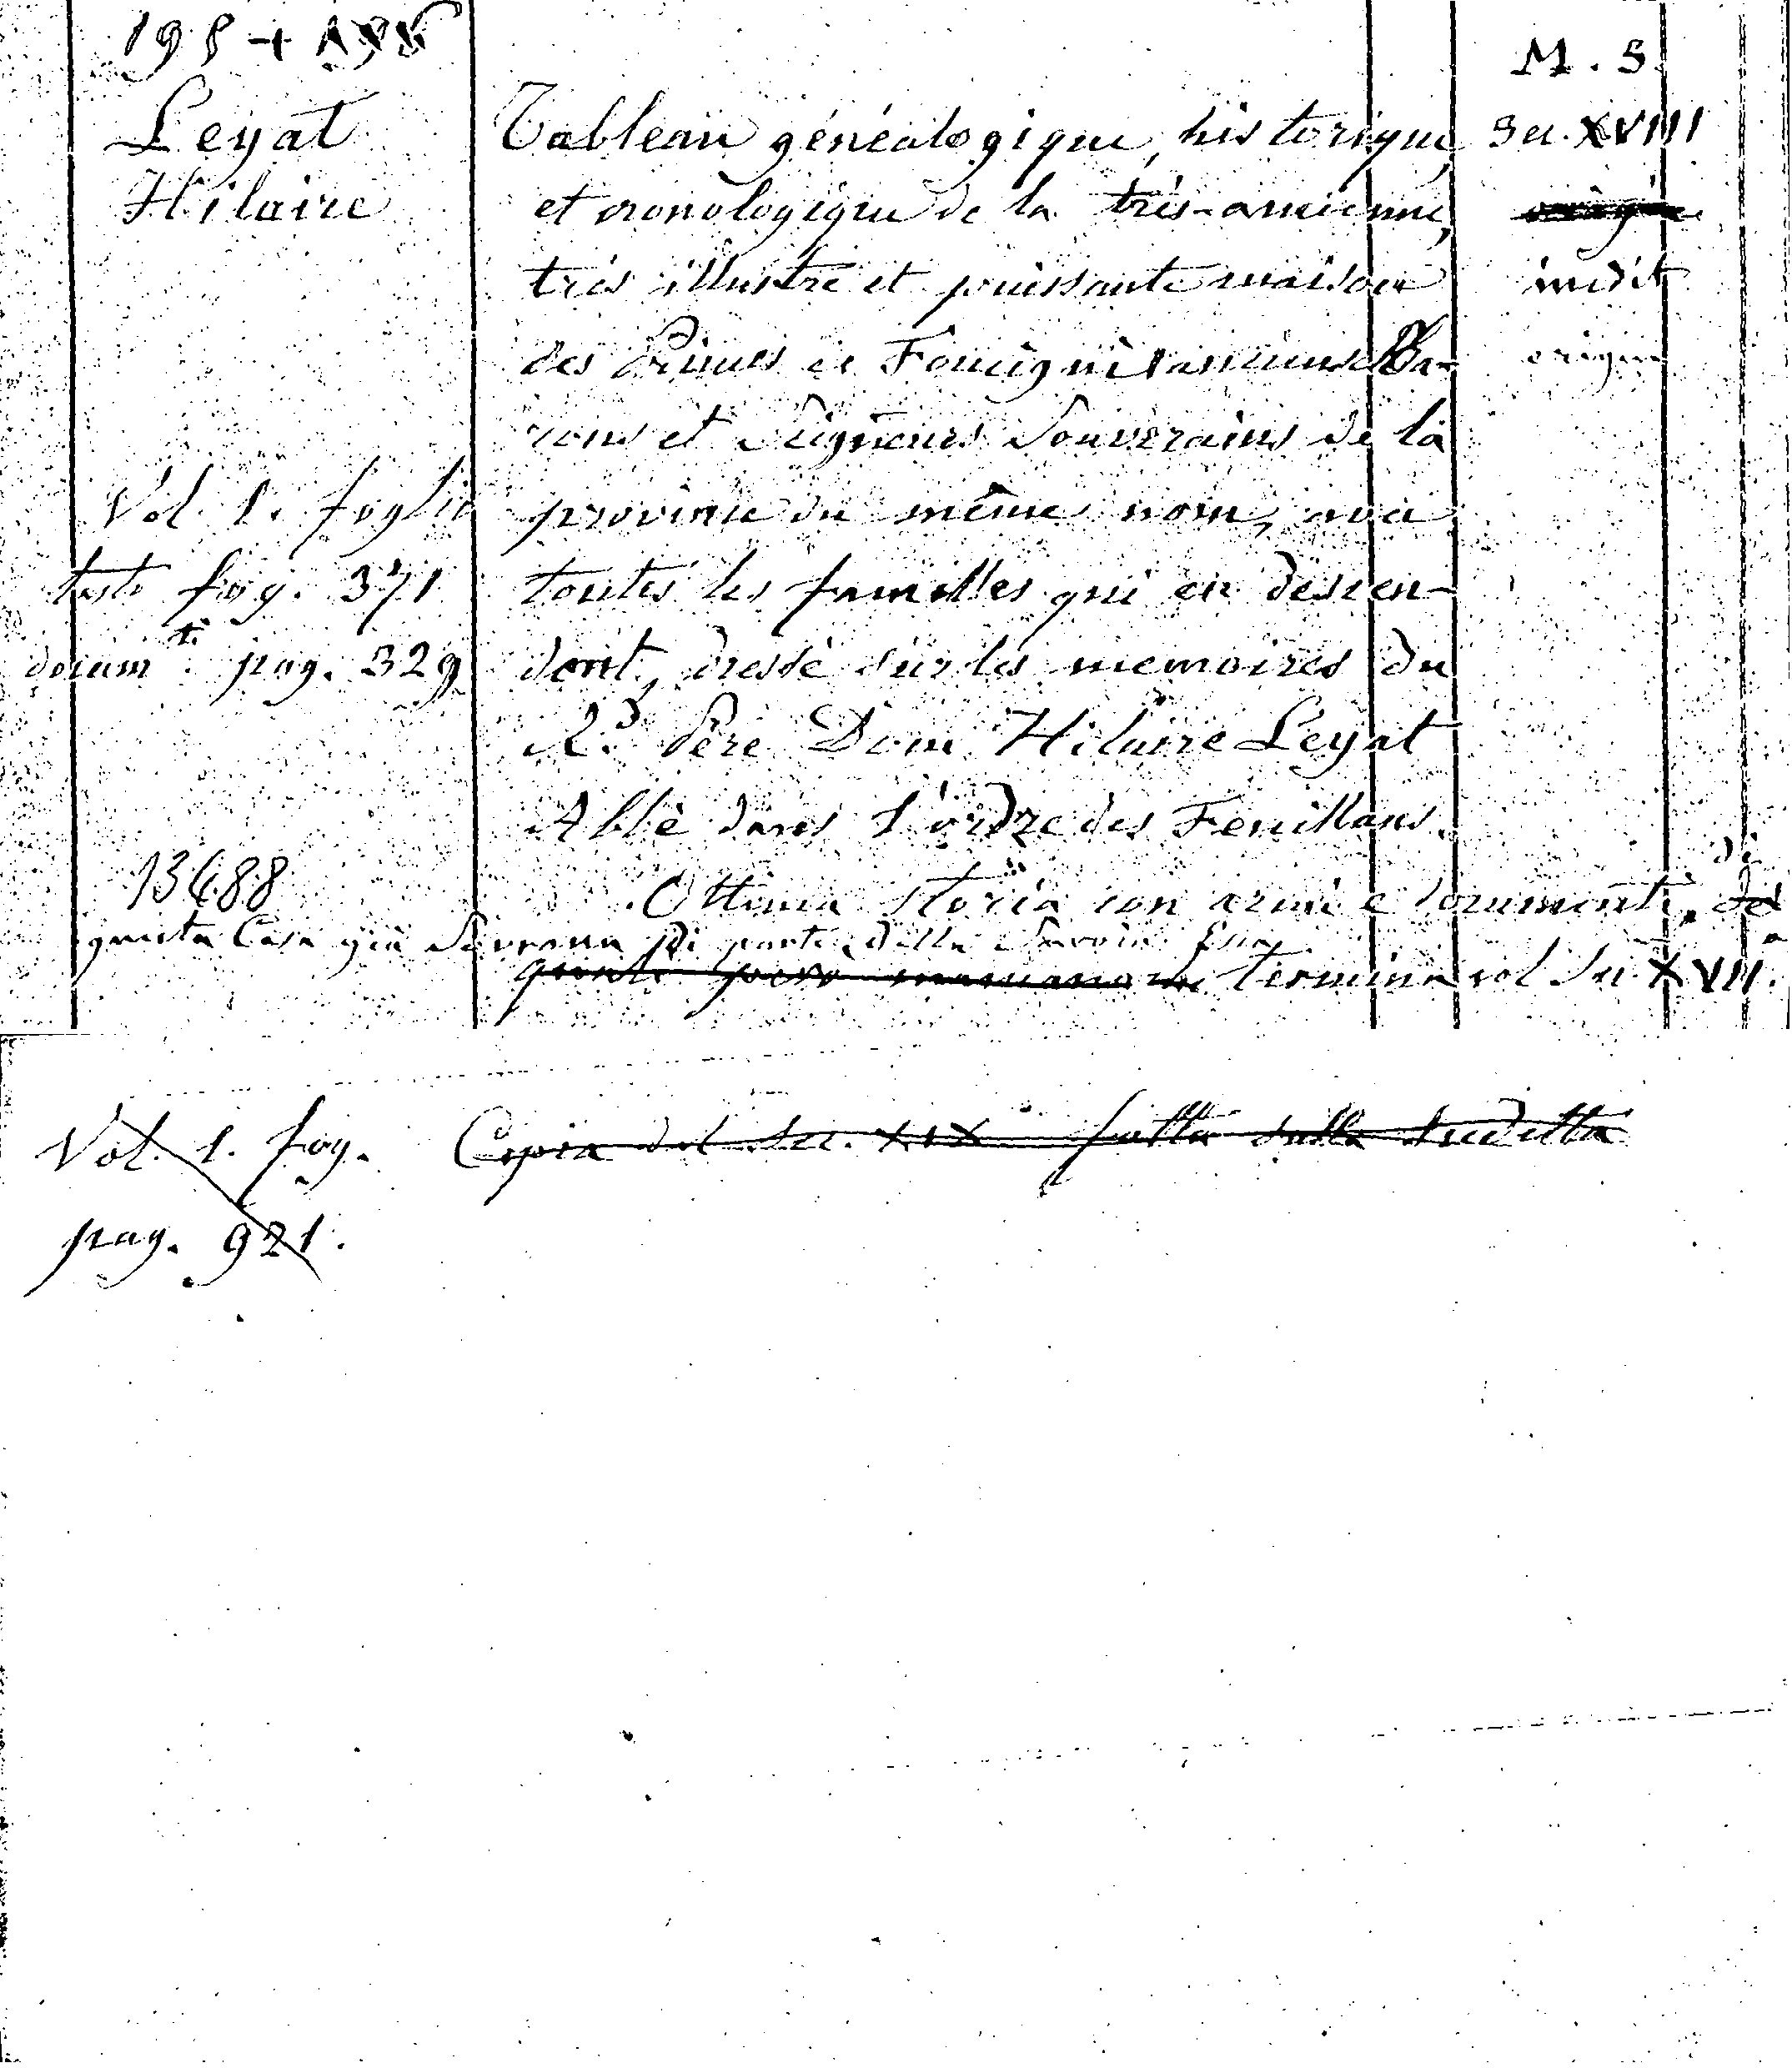 198 +
M. S.
Leyat
Hilaire
Tableau généalogique, historique,
et cronologique de la très-ancienne,
très illustre et puissante maison
des Princes de Foucigni anciens Ba-
rons et Seigneurs Souverains de la
province du même nom, avec
toutes les familles qui en descen-
dent, dressé sur les memoires du
R.d Père Dom Hilaire Leyat
Abbé dans l'ordre des Feuillans.
Sec. XVIII
inedit
origin
Vol. 1. foglio
testo fog. 371
docum.ti pag. 329
13688
Ottima storia con armi e documenti di
questa Casa già Sovrana di parte della Savoia. Essa
termina col Sec. XVII.
Vol. 1. fog.
pag. 921.
Copia del Sec. XIX fatta sulla sudetta